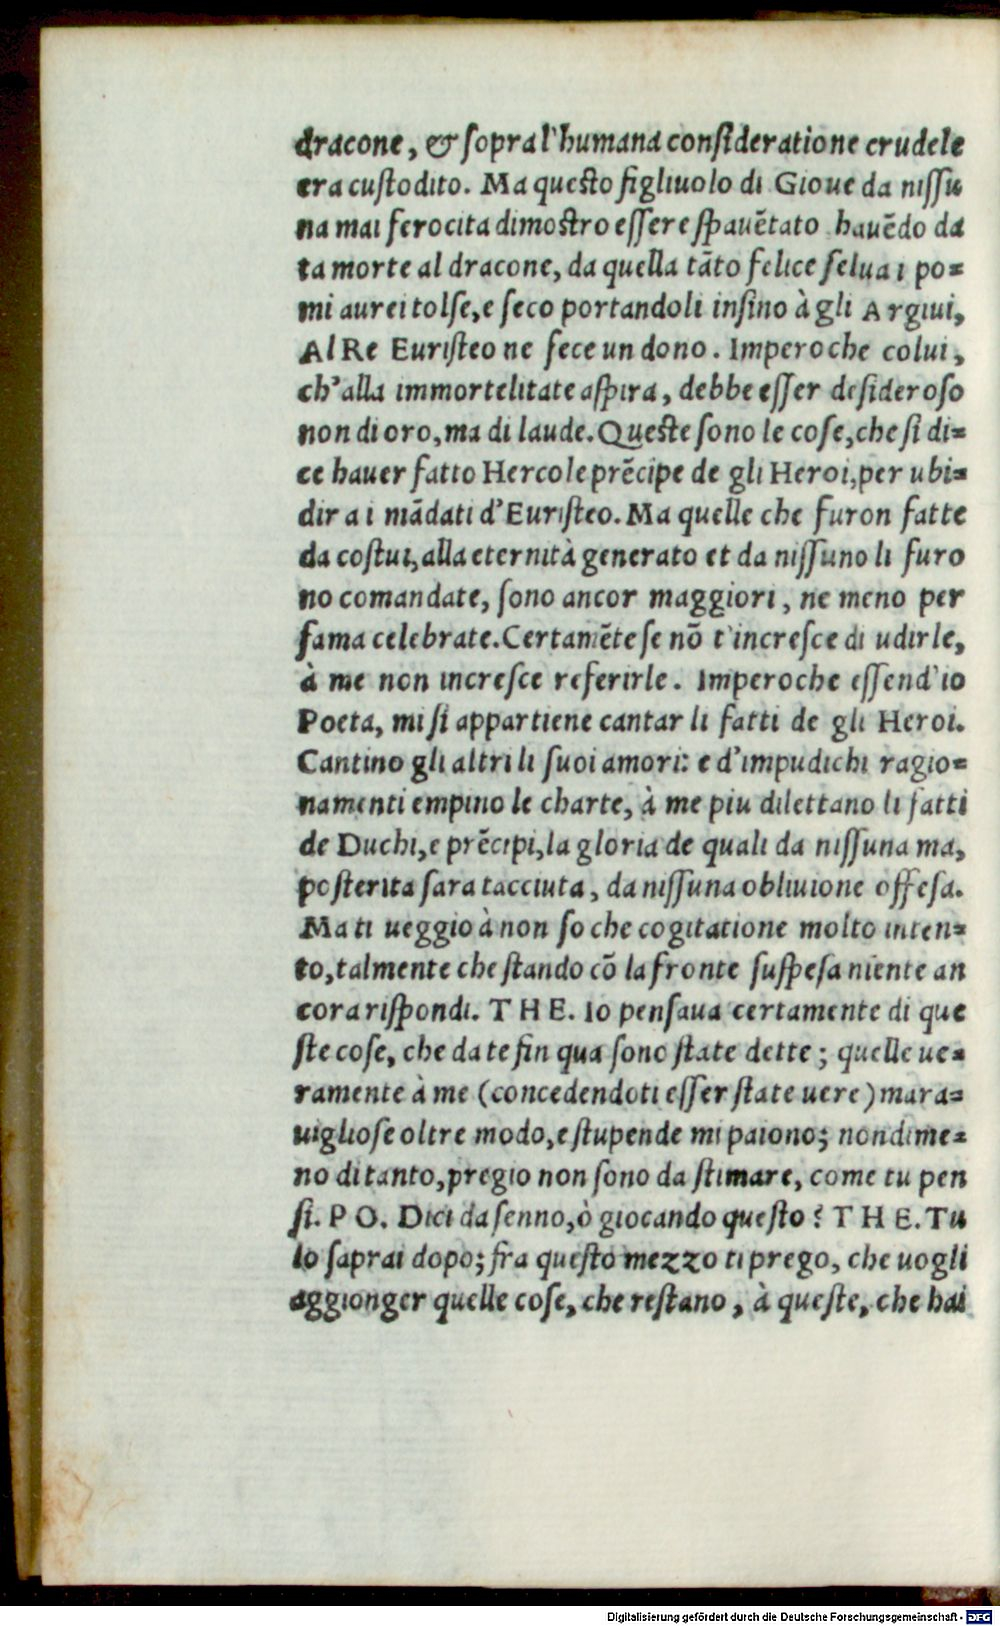 dracone, & sopra l'humana consideratione crudele
era custodito. Ma questo figliuolo di Gioue da nissu
na mai ferocita dimostro essere spauẽtato hauẽdo da
ta morte al dracone, da quella tãto felice selua i po=
mi aurei tolse, e seco portandoli insino à gli Argiui,
Al Re Euristeo ne fece un dono. Imperoche colui,
ch'alla immortelitate aspira, debbe esser desideroso
non di oro, ma di laude. Queste sono le cose, che si di=
ce hauer fatto Hercole prẽcipe de gli Heroi, per ubi=
dir a i mãdati d'Euristeo. Ma quelle che furon fatte
da costui, alla eternità generato et da nissuno li furo
no comandate, sono ancor maggiori, ne meno per
fama celebrate. Certamẽte se nõ t'incresce di udirle,
à me non incresce referirle. Imperoche essend'io
Poeta, mi si appartiene cantar li fatti de gli Heroi.
Cantino gli altri li suoi amori: e d'impudichi ragio=
namenti empino le charte, à me piu dilettano li fatti
de Duchi, e prẽcipi, la gloria de quali da nissuna ma,
posterita sara tacciuta, da nissuna obliuione offesa.
Ma ti ueggio à non so che cogitatione molto inten=
to, talmente che stando cõ la fronte suspesa niente an
cora rispondi. T H E. Io pensaua certamente di que
ste cose, che da te fin qua sono state dette; quelle ue=
ramente à me (concedendoti esser state uere) mara=
uigliose oltre modo, e stupende mi paiono; nondime=
no di tanto, pregio non sono da stimare, come tu pen
si. P O. Dici da senno, ò giocando questo? T H E. Tu
lo saprai dopo; fra questo mezzo ti prego, che uogli
aggionger quelle cose, che restano, à queste, che hai
Digitalisierung gefördert durch die Deutsche Forschungsgemeinschaft - DFG